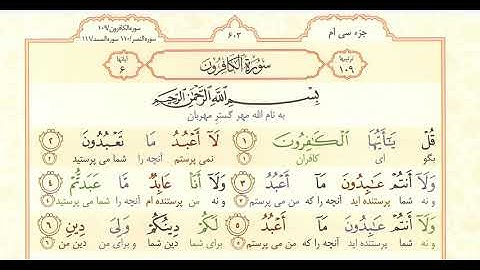 جزء سی ام
۶۰۳
سورة الکافرون/۱۰۹
سورة النصر/۱۱۰ سورة المسد/۱۱۱
ترتیبها ۱۰۹
سُورَةُ الْكَافِرُونَ
آیاتها ۶
بِسْمِ اللَّهِ الرَّحْمَٰنِ الرَّحِيمِ
به نام الله مهر گستر مهربان
قُلْ يَـٰٓأَيُّهَا الْكَـٰفِرُونَ ﴿۱﴾ لَآ أَعْبُدُ مَا تَعْبُدُونَ ﴿۲﴾
بگو ای کافران ۱ نمی پرستم آنچه را شما می پرستید ۲
وَلَآ أَنتُمْ عَـٰبِدُونَ مَآ أَعْبُدُ ﴿۳﴾ وَلَآ أَنَا۠ عَابِدٌ مَّا عَبَدتُّمْ ﴿۴﴾
و نه شما پرستنده اید آنچه را که من می پرستم ۳ و نه من پرستنده ام آنچه را شما می پرستید ۴
وَلَآ أَنتُمْ عَـٰبِدُونَ مَآ أَعْبُدُ ﴿۵﴾ لَكُمْ دِينُكُمْ وَلِىَ دِينِ ﴿۶﴾
و نه شما پرستنده اید آنچه را که من می پرستم ۵ برای شما دین شما و برای من دین من ۶